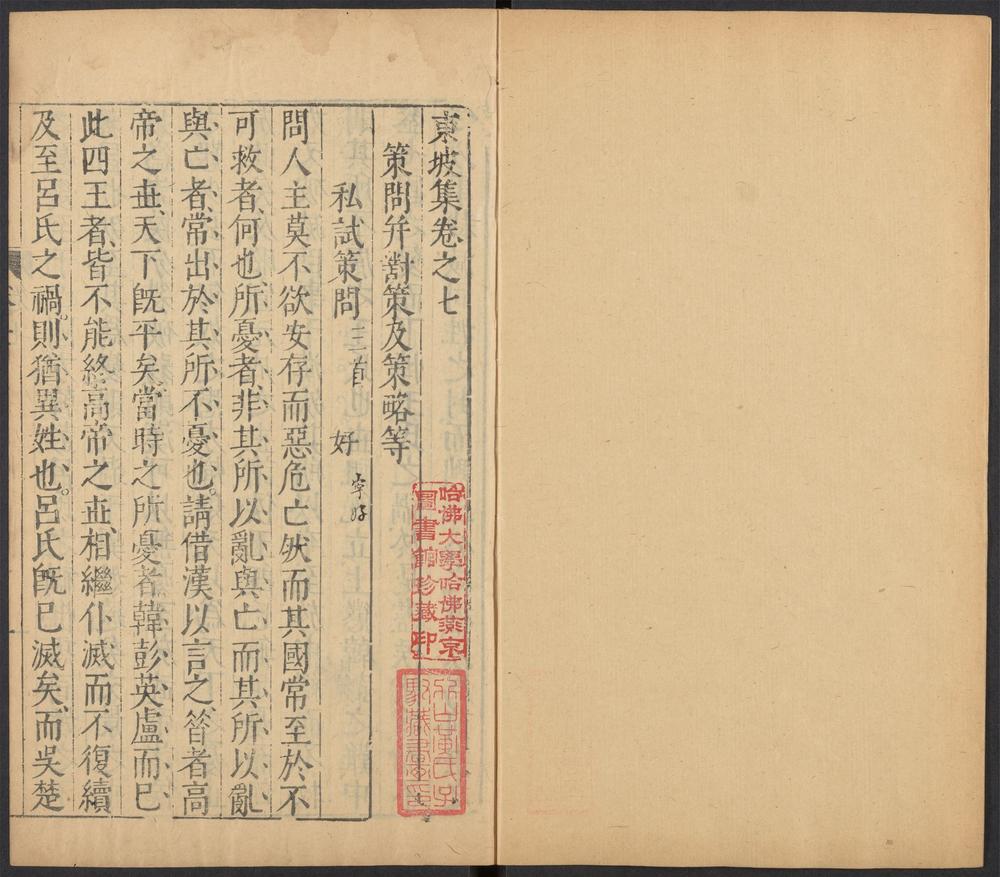 東坡集卷之七
策問并對策及策略等
私試策問三首 好
問人主莫不欲安存而惡危亡然而其國常至於不
可救者、何也、所憂者、非其所以亂與亡、而其所以亂
與亡者、常出於其所不憂也。請借漢以言之、昝者高
帝之世、天下旣平矣、當時之所憂者、韓彭英盧而巳
此四王者、皆不能終高帝之世、相繼仆滅、而不復續
及至呂氏之禍、則猶異姓也。呂氏旣巳滅矣、而吳楚
哈佛大學哈佛燕京
圖書館珍藏印